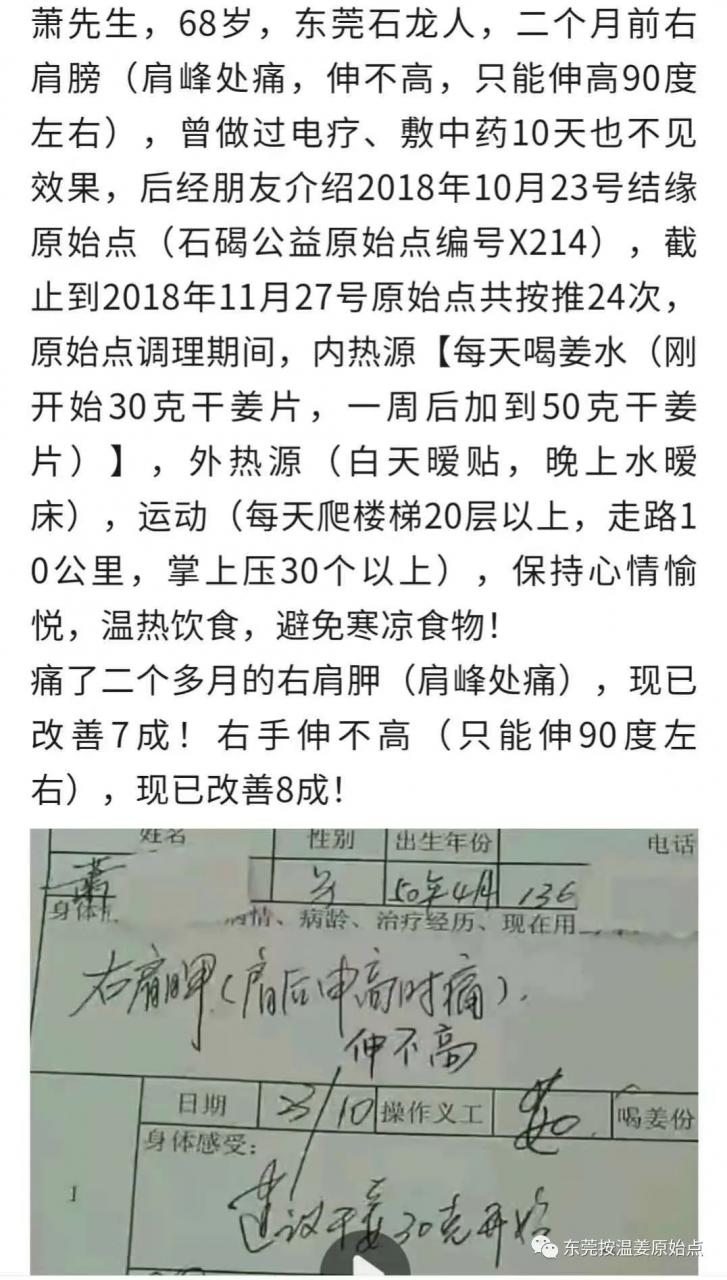 萧先生，68岁，东莞石龙人，二个月前右
肩膀（肩峰处痛，伸不高，只能伸高90度
左右），曾做过电疗、敷中药10天也不见
效果，后经朋友介绍2018年10月23号结缘
原始点（石碣公益原始点编号X214），截
止到2018年11月27号原始点共按推24次，
原始点调理期间，内热源【每天喝姜水（刚
开始30克干姜片，一周后加到50克干姜
片）】，外热源（白天暖贴，晚上水暖
床），运动（每天爬楼梯20层以上，走路1
0公里，掌上压30个以上），保持心情愉
悦，温热饮食，避免寒凉食物！
痛了二个多月的右肩胛（肩峰处痛），现已
改善7成！右手伸不高（只能伸90度左
右），现已改善8成！
姓名 性别 出生年份 电话
萧 50年4月 136
身体 病情、病龄、治疗经历、现在用
右肩胛（肩后伸高时痛）.
伸不高
日期 23/10 操作义工 喝姜份
身体感受：
1
建议干姜30克开始
东莞按温姜原始点